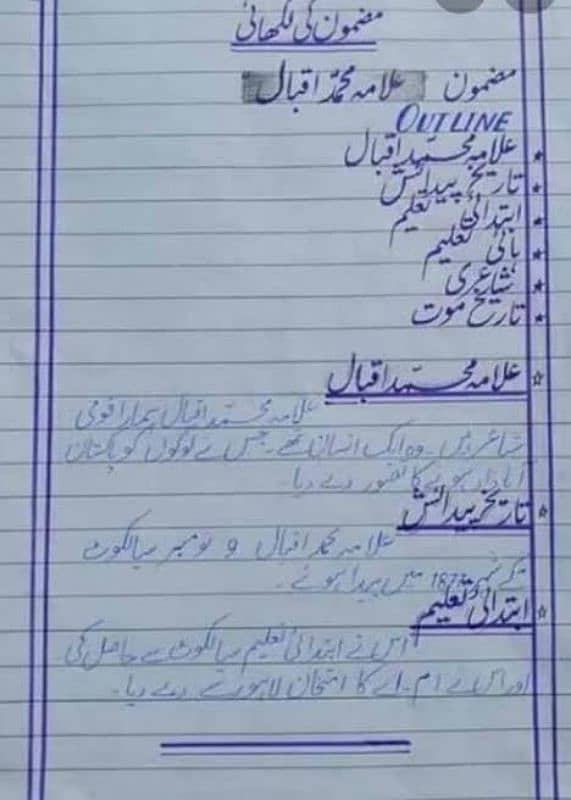 مضمون کی لکھائی
مضمون علامہ محمد اقبال
OUTLINE
علامہ محمد اقبال
تاریخ پیدائش
ابتدائی تعلیم
ہائی تعلیم
شاعری
تاریخ موت
علامہ محمد اقبال
علامہ محمد اقبال ہمارا قومی
شاعر ہیں۔ وہ ایک انسان تھے۔ جس نے لوگوں کو پاکستان
ہونے کا تصور دے دیا۔
تاریخ پیدائش
علامہ محمد اقبال 9 نومبر سیالکوٹ
کے شہر میں پیدا ہوئے۔
ابتدائی تعلیم
اس نے ابتدائی تعلیم سیالکوٹ سے حاصل کی
اور اس نے ام۔اے کا امتحان لاہور سے دے دیا۔